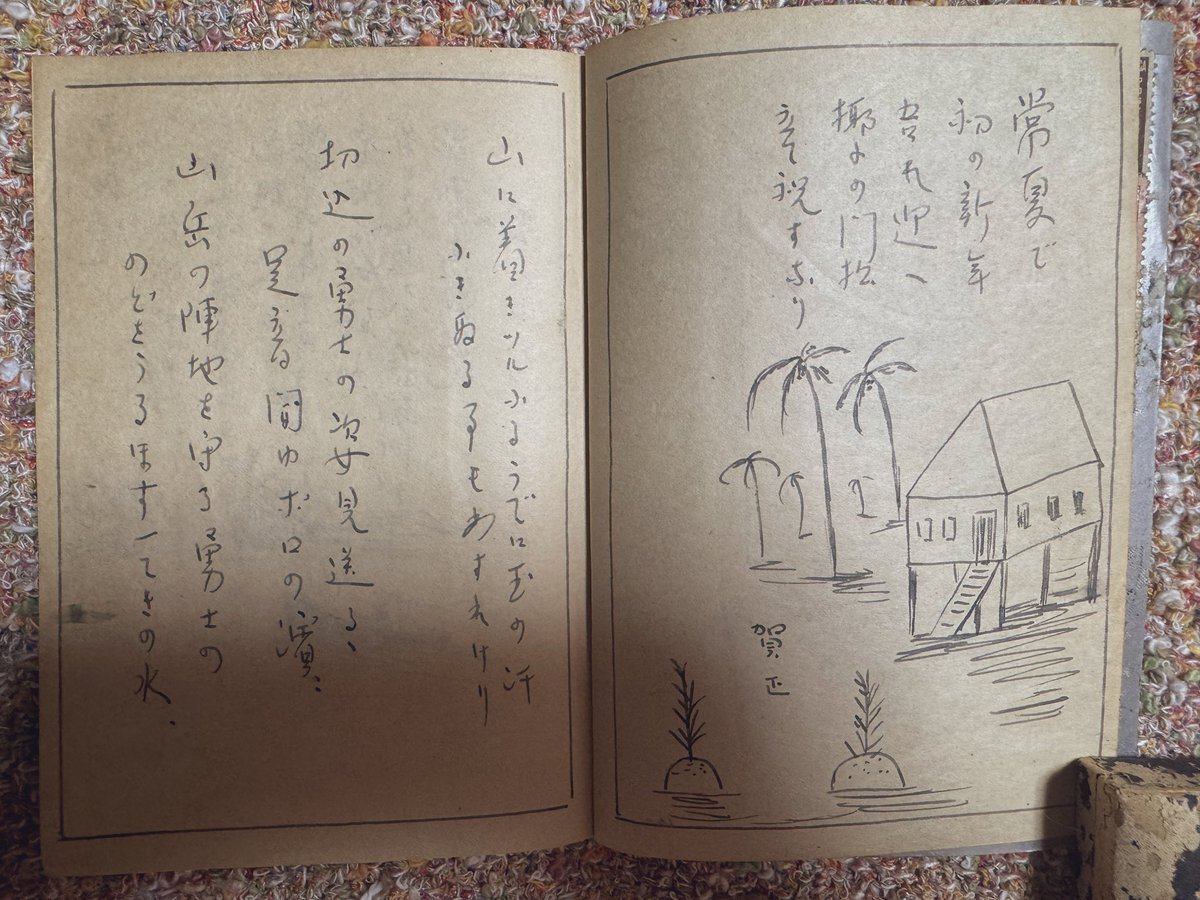 常夏で
初の新年
吾れ迎へ
椰子の門松
立て祝すなり
賀正
山に着きツルふるうでに玉の汗
ふきぬる事もわすれけり
切込の勇士の姿見送る、
足音聞ゆボロの濱、
山岳の陣地を守る勇士の
のどをうるほす一てきの水、